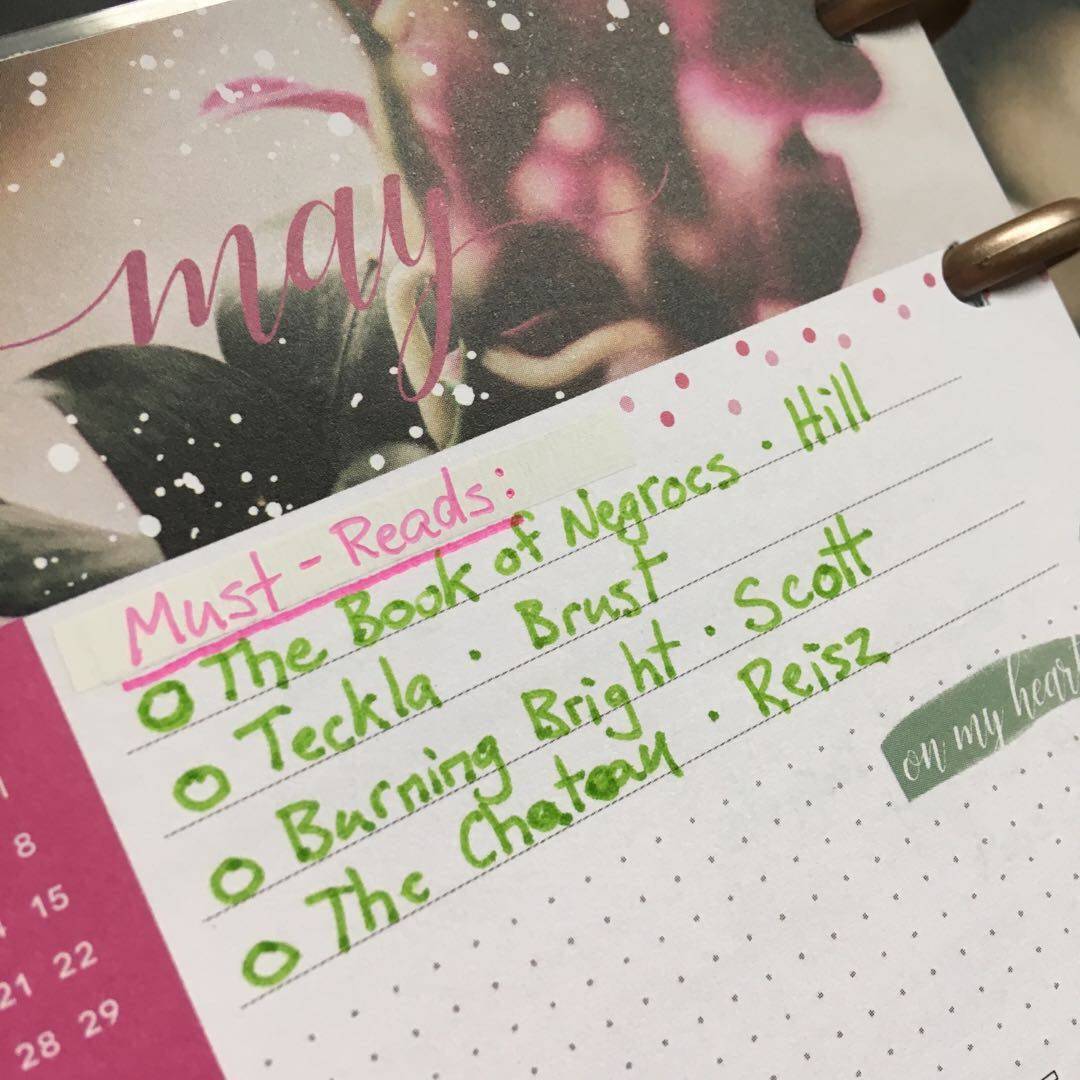 may
Must-Reads:
The Book of Negroes · Hill
Teckla · Brust
Burning Bright · Scott
The Chateau · Reisz
on my heart
1
8
15
21 22
28 29